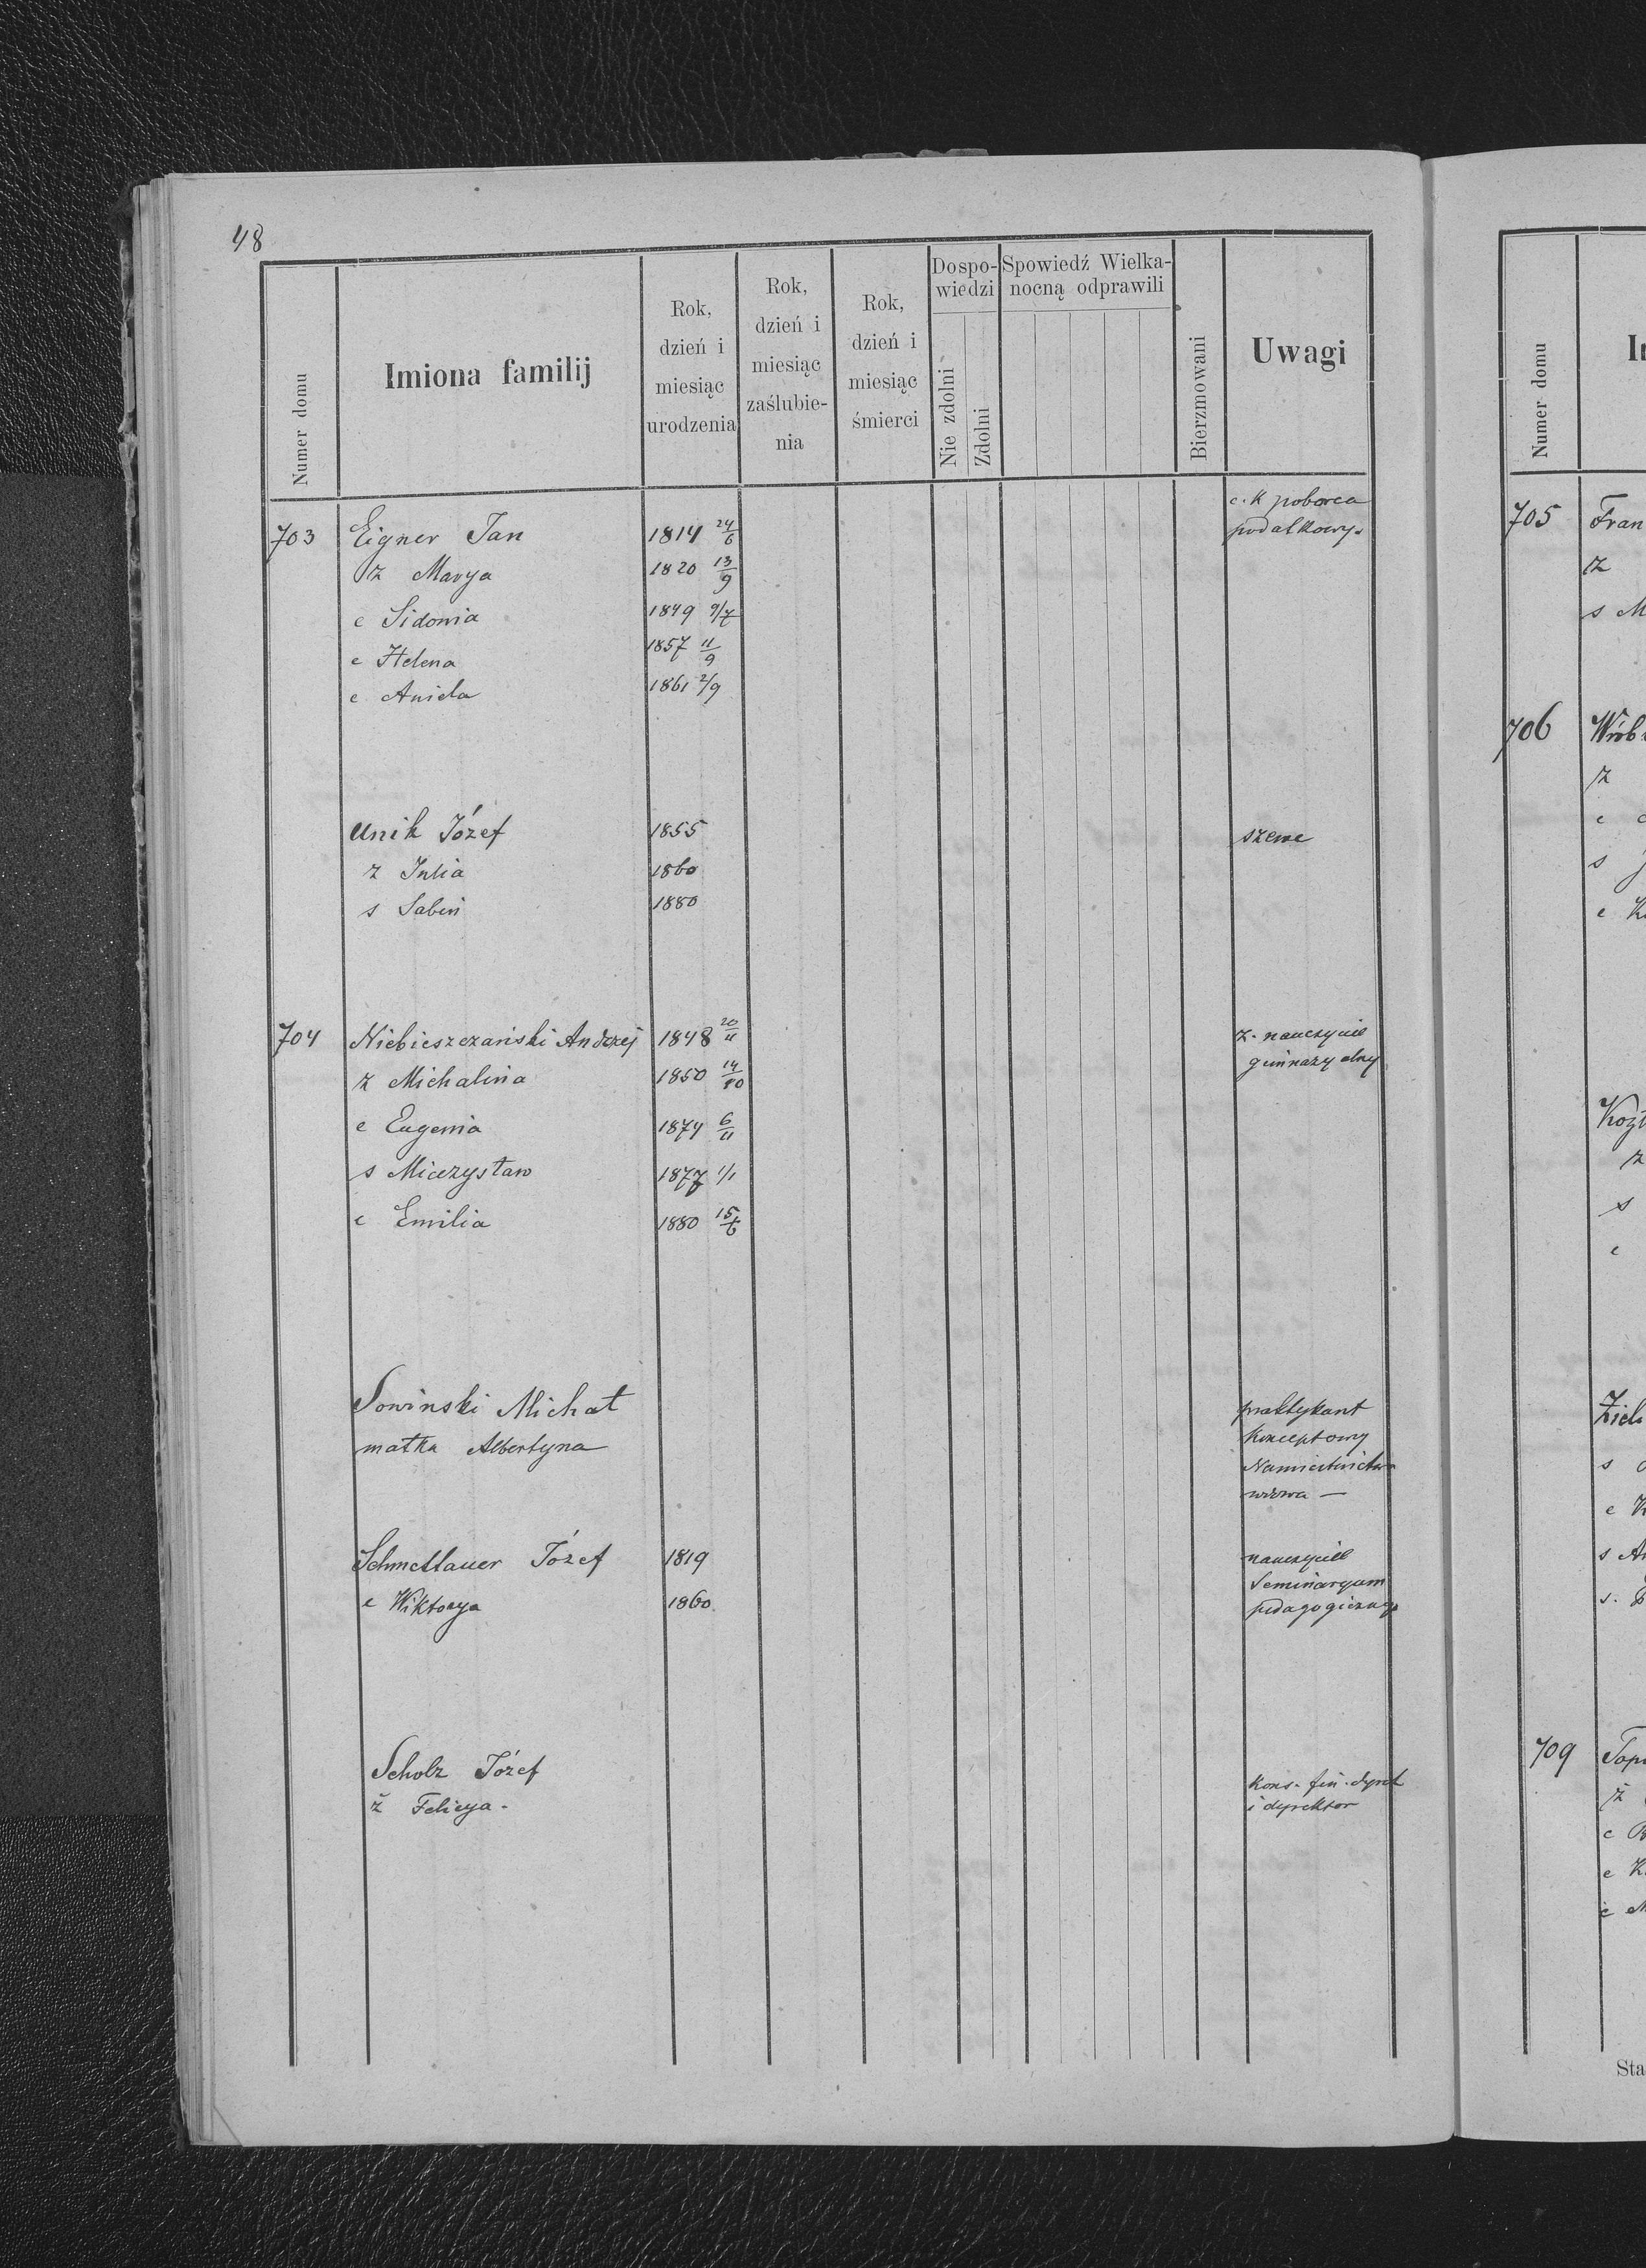 48
Numer domu
Imiona familij
Rok, dzień i miesiąc urodzenia
Rok, dzień i miesiąc zaślubie-nia
Rok, dzień i miesiąc śmierci
Dospo-wiedzi
Nie zdolni
Zdolni
Spowiedź Wielka-nocną odprawili
Bierzmowani
Uwagi
c. k poborca
703 Eigner Jan 1814 24/6 podatkowy.
ż Marya 1820 13/9
c Sidonia 1849 9/7
c Helena 1857 11/9
c Aniela 1861 2/9
Unik Józef 1855 szewc
ż Julia 1860
s Sabin 1880
704 Niebieszczański Andrzej 1848 20/11 z. nauczyciel
gimnazyalny
ż Michalina 1850 14/10
c Eugenia 1874 6/11
s Mieczysław 1877 1/1
c Emilia 1880 15/6
Sowinski Michał praktykant
matka Albertyna konceptowy
Namiestnictwa
wdowa —
Schmettauer Józef 1819 nauczyciel
Seminaryum
c Wiktorya 1860 pedagogiczneg
Scholz Józef kons. fin. dyrek
ż Felicya. i dyrektor
Numer domu
705 Fran
ż
s M
706 Wrób
ż
c
s J
c K
Kozł
ż
s
c
Ziel
s
c K
s A
709 Topo
ż
c
c K
c M
Sta